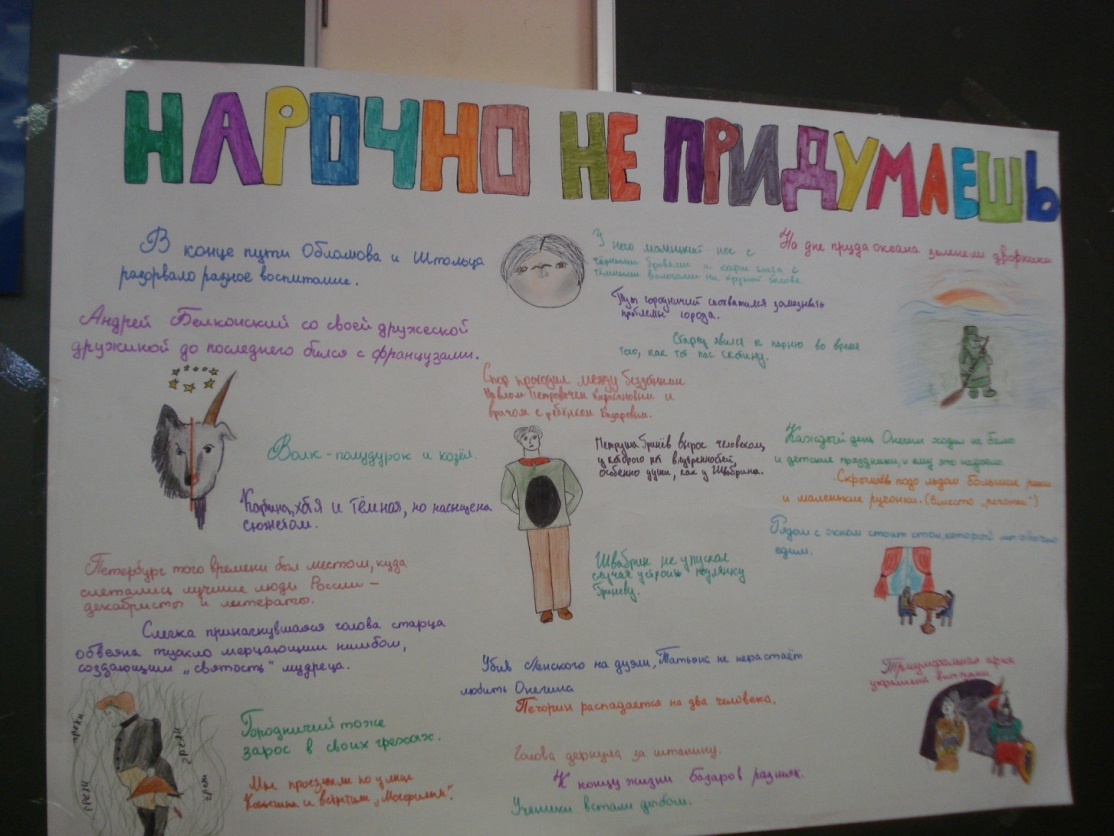 НАРОЧНО НЕ ПРИДУМАЕШЬ
В конце пути Обломова и Штольца
разорвало разное воспитание.
Андрей Болконский со своей дружеской
дружиной до последнего бился с французами.
Волк - полудурок и козёл.
Картина, хотя и тёмная, но насыщена
сюжетом.
Петербург того времени был местом, куда
слетались лучшие люди России -
декабристы и литераты.
Слегка принагнувшаяся голова старца
обвеяна тускло мерцающим нимбом,
создающим „святость" мудреца.
грехи
грехи
грехи
грехи
Городничий тоже
зарос в своих грехах.
Мы проезжали по улице
и встретили „Мосфильм".
У него маленький нос с
чёрными бровями и карие глаза с
тёмными волосами на круглой голове.
Тут городничий схватился замазывать
проблемы города.
Старец явился к парню во время
того, как тот пас скотину.
Спор проходил между бездетными
Павлом Петровичем Кирсановым и
врачом с ребёнком Базаровым.
Петруша Гринёв вырос человеком,
у которого нет внутренностей,
особенно души, как у Швабрина.
Швабрин не упускал
случая устроить подлянку
Гринёву.
Убив Ленского на дуэли, Татьяна не перестаёт
любить Онегина
Печорин распадается на два человека.
Голова дёрнула за штанину.
К концу жизни Базаров размяк.
Ученики встали дыбом.
На дне пруда океана зимнели дворники
Каждый день Онегин ходил на балы
и детские праздники, и ему это надоело
Скрылись подо льдом большие реки
и маленькие ручонки. (вместо „речонки")
Рядом с окном стоит стол, которой мы обычно
едим.
Триумфальная арка
украшена